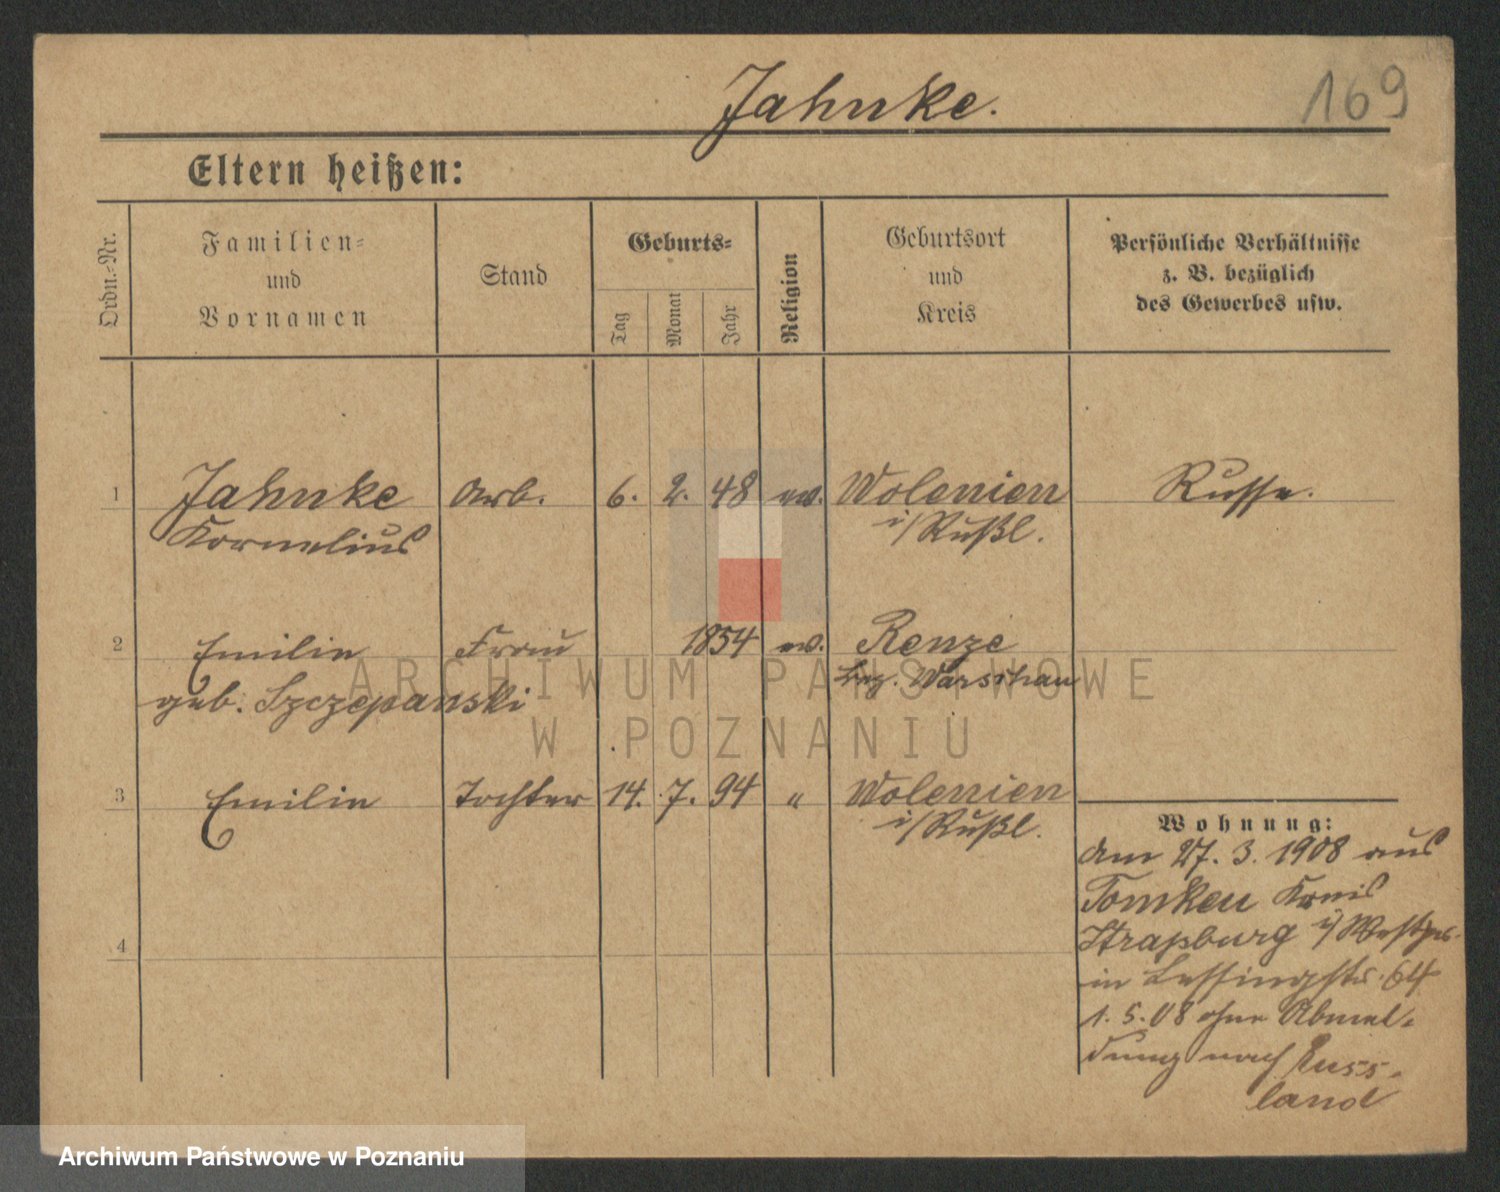 Jahnke.
169
Eltern heißen:
Ordn.-Nr.
Familien-
und
Vornamen
Stand
Geburts-
Tag
Monat
Jahr
Religion
Geburtsort
und
Kreis
Persönliche Verhältnisse
z. B. bezüglich
des Gewerbes usw.
1 Jahnke Arb. 6. 2. 48 ev. Wolenien Russe.
Kornelius i/Rußl.
2 Emilie Frau 1854 ev. Renze
geb. Szczepanski bez. Warschau
3 Emilie Tochter 14. 7. 94 " Wolenien
i/Rußl.
4
Wohnung:
Am 27. 3. 1908 aus
Tomken Kreis
Straßburg i/Westpr.
in Lessingstr. 64
1. 5. 08 ohne Abmel-
dung nach Russ-
land
ARCHIWUM PAŃSTWOWE
W POZNANIU
Archiwum Państwowe w Poznaniu